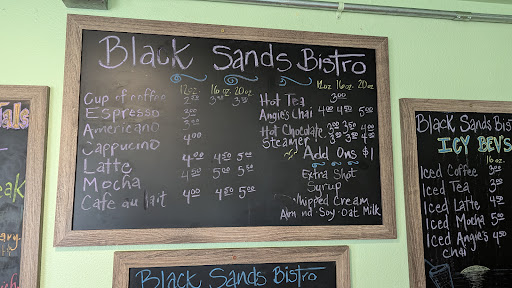 Black Sands Bistro
12oz. 16oz. 20oz
Cup of coffee 2.50 3.00 3.50
Espresso 3.00
Americano 3.00
Cappucino 4.00
Latte 4.00 4.50 5.00
Mocha 4.00 5.00 5.50
Cafe au lait 4.00 4.50 5.00
12oz 16oz 20oz
Hot Tea 3.00
Angie's Chai 4.00 4.50 5.00
Hot Chocolate 3.00 3.50 4.00
Steamer
Add Ons $1
Extra Shot
Syrup
Whipped Cream
Almond · Soy · Oat Milk
Black Sands Bis
ICY BEVS
16oz.
Iced Coffee 3.00
Iced Tea 3.00
Iced Latte 4.50
Iced Mocha 5.00
Iced Angie's 4.50
Chai
Black Sands Bistro